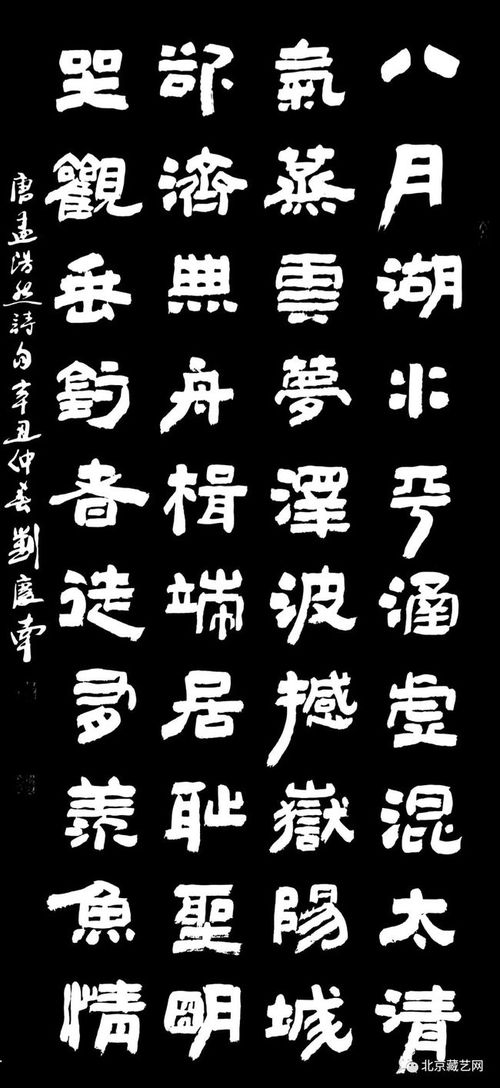 八月湖水平涵虛混太清
氣蒸雲夢澤波撼嶽陽城
欲濟無舟楫端居耻聖明
坐觀垂釣者徒有羨魚情
唐孟浩然詩句辛丑仲春劉
北京藏艺网